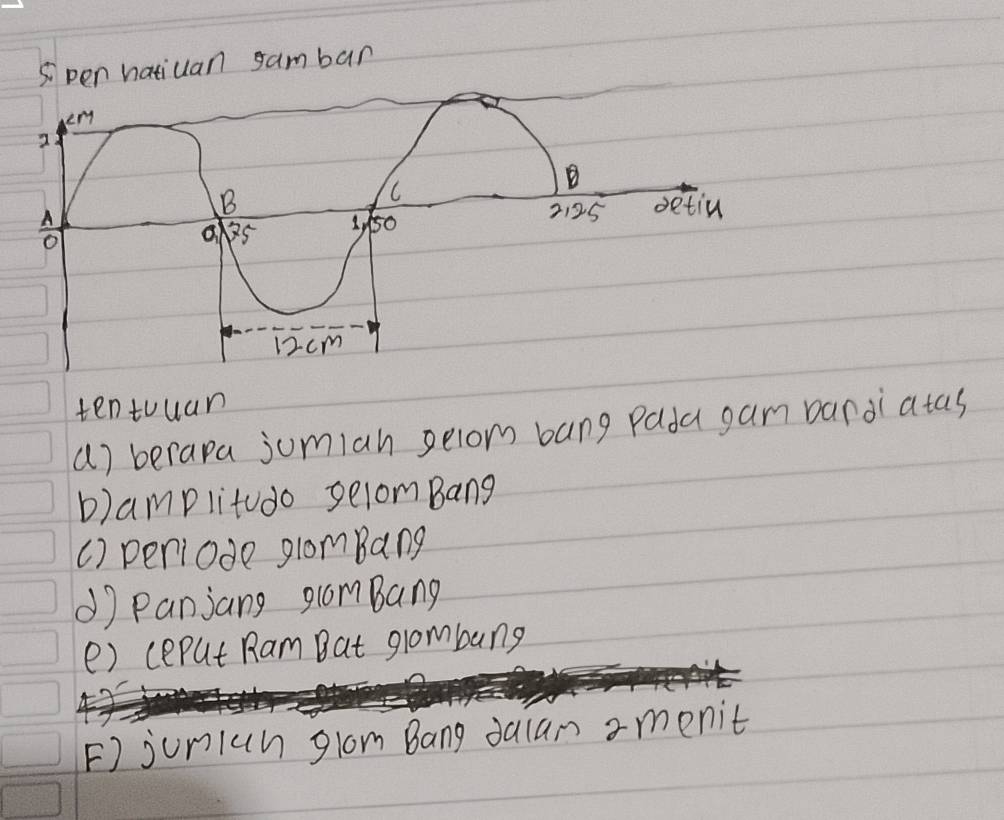 5. perhatikan gambar
cm
2
A
0
B
0,75
C
1,50
D
2,25
detik
12cm
tentukan
a) berapa jumlah gelom bang pada gambar di atas
b) amplitudo gelomBang
c) periode glomBang
d) panjang glomBang
e) cepat RamBat glombang
F) jumlah glom Bang dalam 2 menit